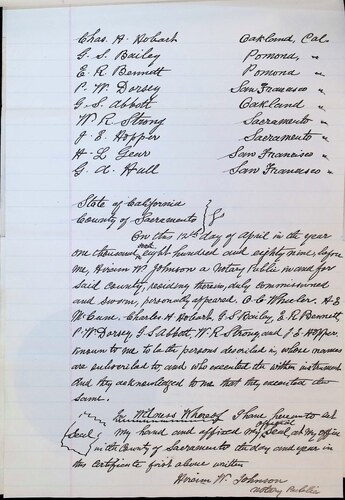 Chas. H. Hobart Oakland, Cal.
G. S. Bailey Pomona, "
E. R. Bennett Pomona "
P. W. Dorsey San Francisco "
G. S. Abbott Oakland "
W R Strong Sacramento "
J. E. Hopper Sacramento "
H. L Gear San Francisco "
G. A. Hull San Francisco "
State of California
County of Sacramento
On this 12th day of April in the year
one thousand and eight hundred and eighty nine, before
me, Hiram W. Johnson a Notary Public in and for
said county, residing therein, duly commissioned
and sworn, personally appeared O. C. Wheeler. A. E
Charles H Hobart G. S Bailey, E. R. Bennett
P. W Dorsey, G S Abbott, W. R Strong and J. E Hopper.
known to me to be the persons described in, whose names
are subscribed to, and who executed the within instrument
And they acknowledged to me that they executed the
same.
In Witness Whereof I have hereunto set
Seal my hand and affixed my official Seal, at my office
in the County of Sacramento the day and year in
this certificate first above written
Hiram W. Johnson
Notary Public